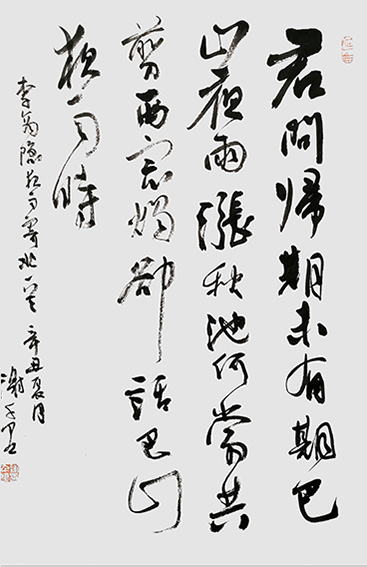 君問歸期未有期巴
山夜雨漲秋池何當共
剪西窗燭卻話巴山
夜雨時
李商隱夜雨寄北一首 辛丑夏月